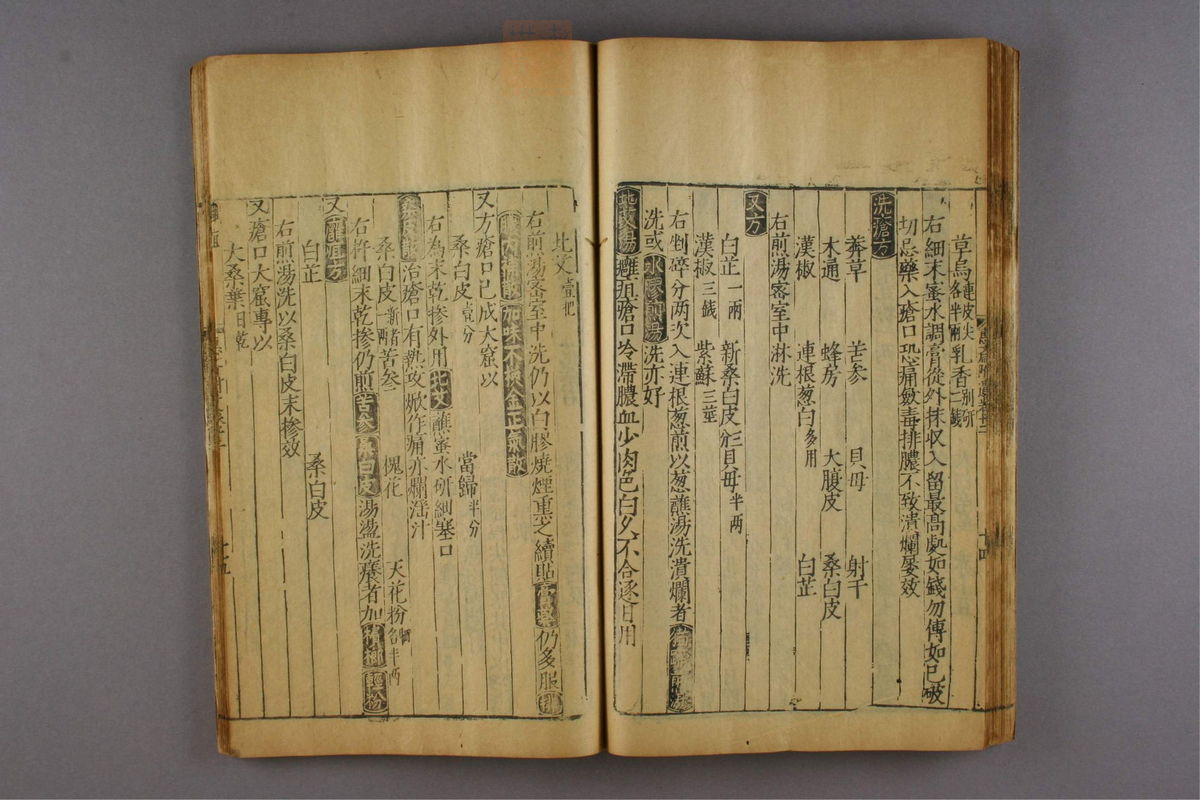 草烏連皮尖各半兩 乳香別研二錢
右細末蜜水調膏從外抹収入留最高處如錢勿傅如已破
切忌藥入瘡口恐痛斂毒排膿不致潰爛屢效
洗瘡方
莾草 苦参 貝母 射干
木通 蜂房 大腹皮 桑白皮
漢椒 連根葱白多用 白芷
右煎湯密室中淋洗
又方
白芷一兩 新桑白皮 貝母半两
漢椒三錢 紫蘇三莖
右剉碎分两次入連根葱煎以葱蘸湯洗潰爛者
洗或 湯洗亦好
北艾湯 癰疽瘡口冷滯膿血少肉色白久不合逐日用
北艾壹把
右煎湯密室中洗仍以白膠燒煙熏之續貼膏藥仍多服
加味不換金正氣散
又方瘡口已成大窟以
桑白皮壹分 當歸半分
右為末乾摻外用北艾蘸蜜水研細塞口
治瘡口有熱攻焮作痛亦爛湆汁
桑白皮新者一兩 苦参 槐花 天花粉各半两
右杵細末乾摻仍煎苦参桑白皮湯盪洗癢者加檳榔輕粉
又癰疽方
白芷 桑白皮
右煎湯洗以桑白皮末摻效
又瘡口大窟專以
大桑葉日乾